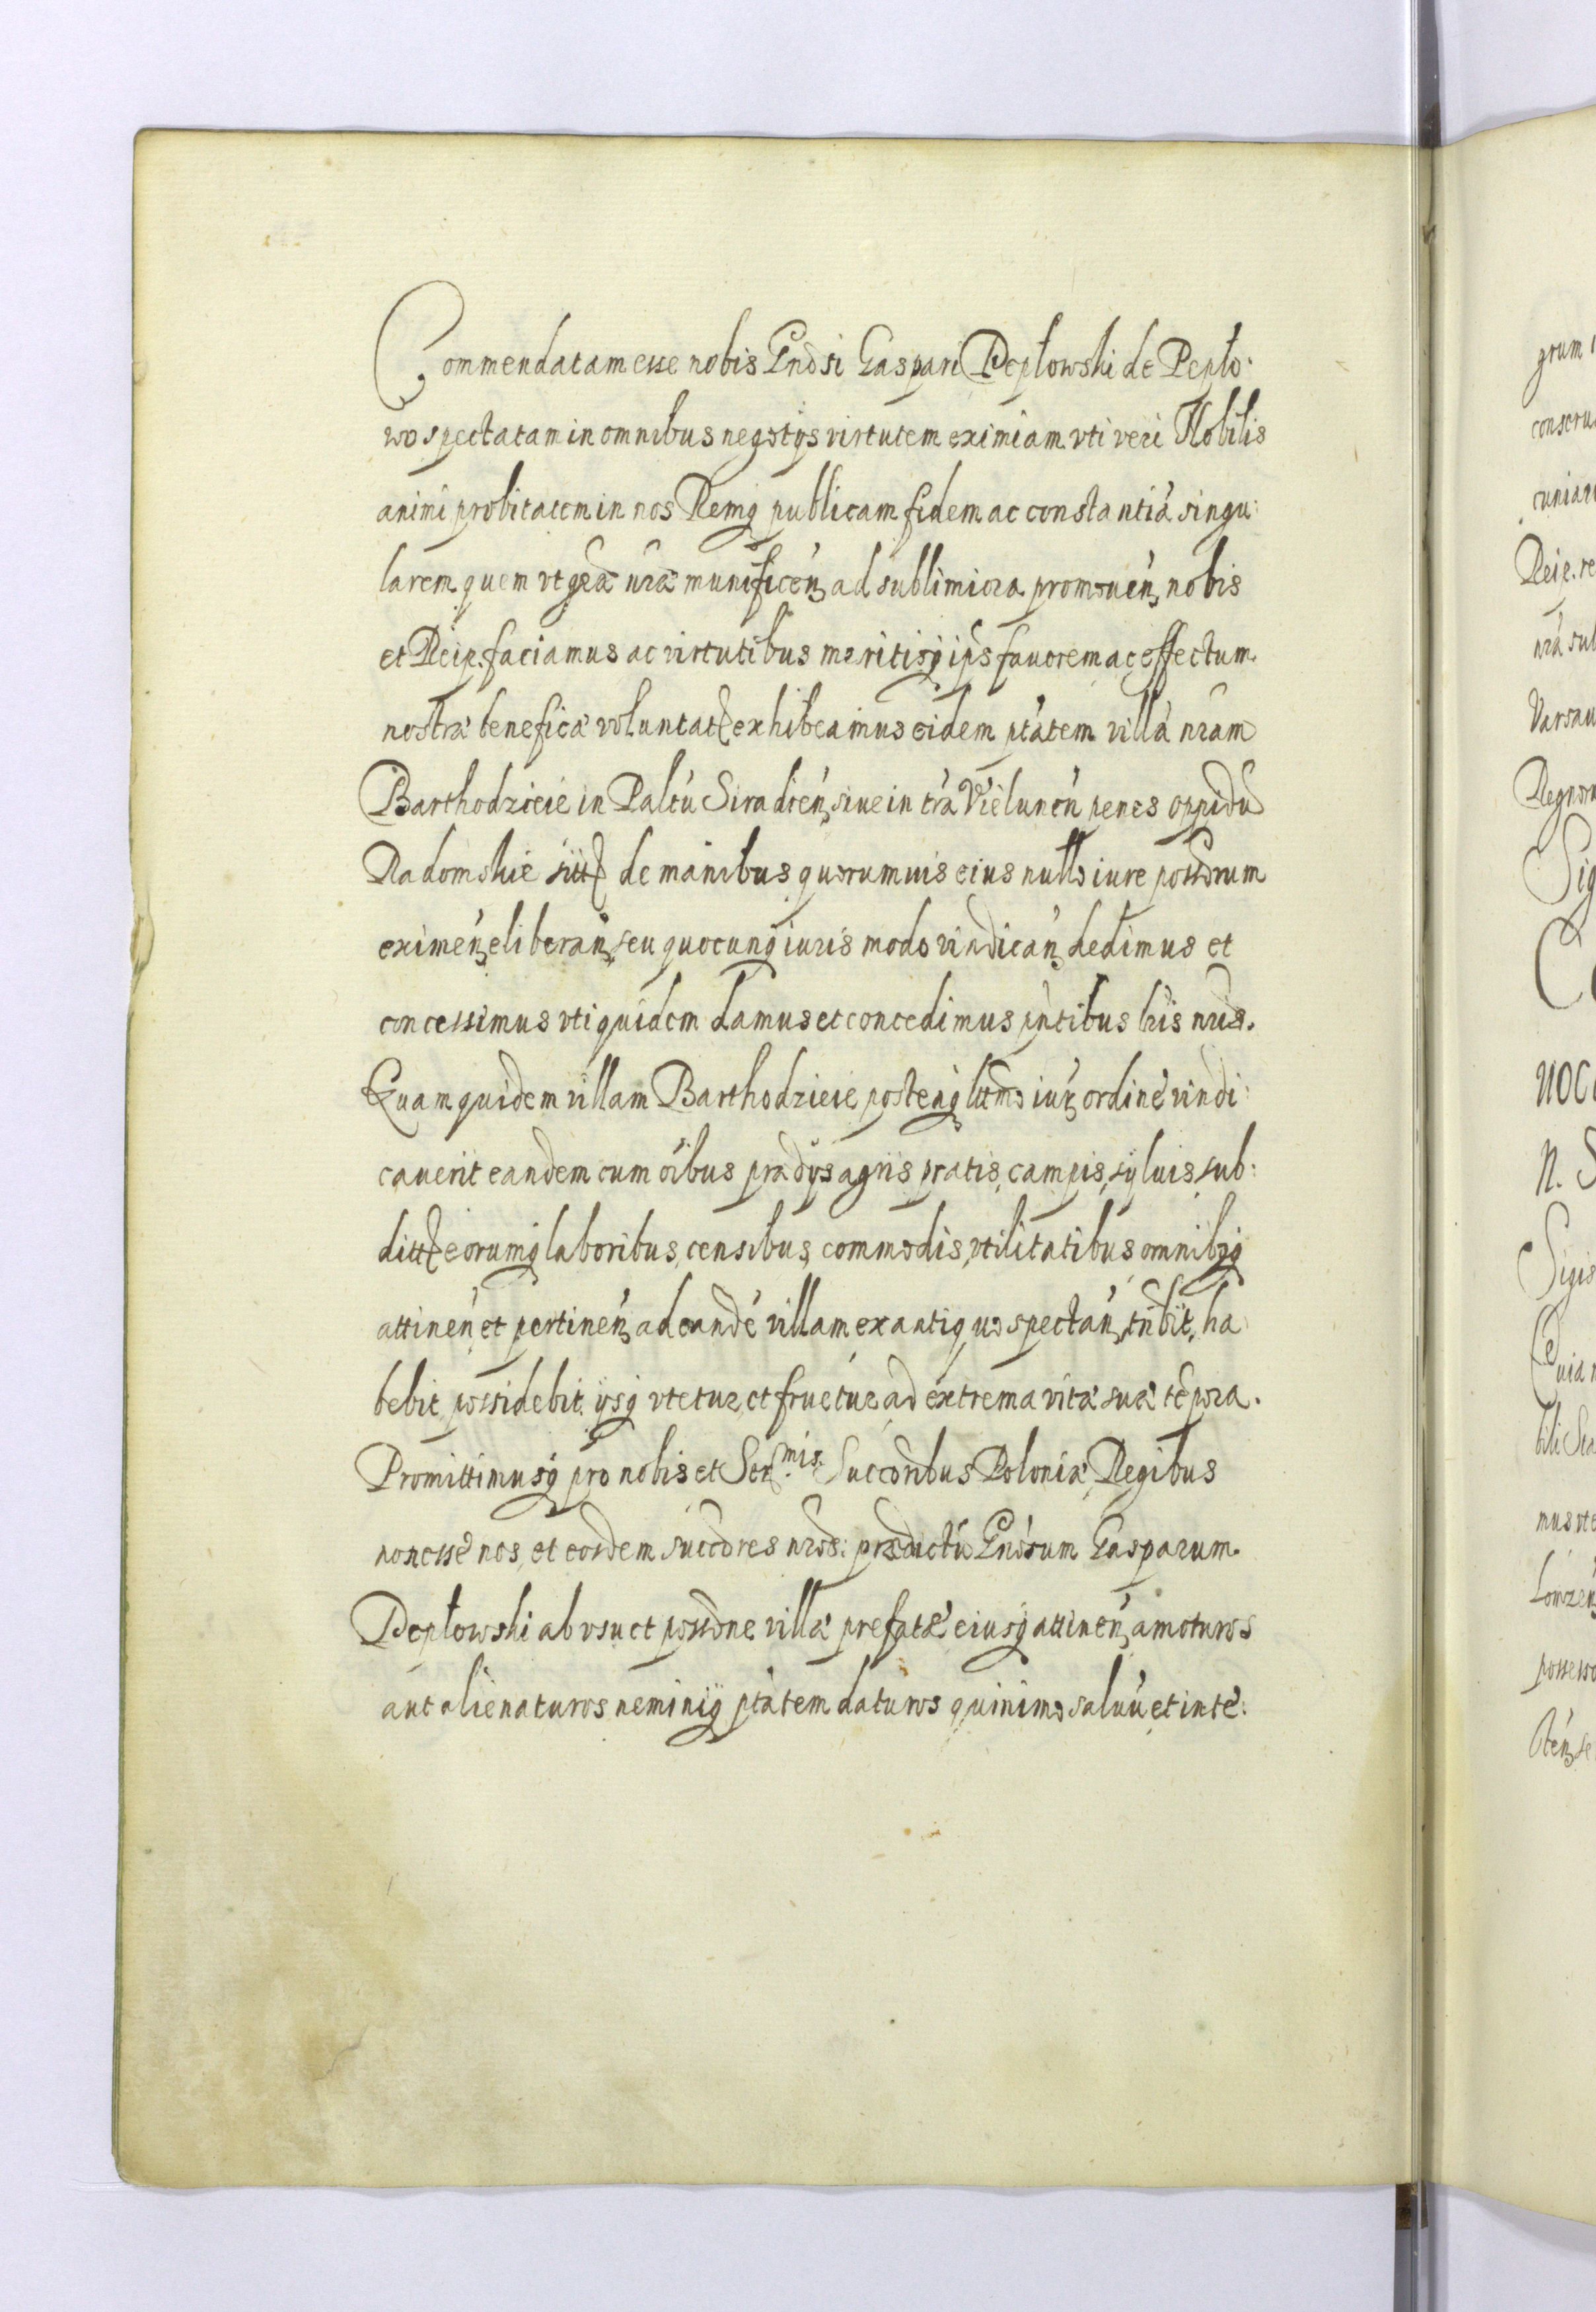 Commendatam esse nobis Gnosi Gaspari Pepłowski de Pepło:
wo spectatam in omnibus negotijs virtutem eximiam vti veri Nobilis
animi probitatem in nos Remq publicam fidem ac constantiã singu:
larem quem vt grã nrã munificeń ad sublimiora promoueń nobis
et Reip. faciamus ac virtutibus meritisq ips fauorem ac effectum
nostræ beneficæ voluntatę exhibeamus eidem ptatem villã nram
Barthodzieie in Paltu Siradień siue in tra Vieluneń penes oppidũ
Radomskie sittę de manibus quorumuis eius nullo iure possorum
eximeń eliberań seu quocunq iuris modo vindicań dedimus et
concessimus vti quidem damus et concedimus pntibus lris nris.
Quam quidem villam Barthodzieie posteaq lttmo iur ordine vindi:
cauerit eandem cum oibus prædijs agris pratis, campis, syluis, sub:
dittę eorumq laboribus, censibus, commodis, vtilitatibus omnibq
attineń et pertineń ad eandẽ villam ex antiquo spectań tnbit, ha
bebit possidebit ijsq vtetur et fruetur ad extrema vitæ suæ tẽpora.
Promittimusq pro nobis et Ser.mis Succoribus Poloniæ Regibus
non esse nos, et eosdem succores nros: prædictũ Gnosum Gasparum
Pepłowski ab vsu et possone villæ prefatæ eiusq attineń amoturos
aut alienaturos neminiq ptatem daturos quinimo saluũ et inte:
grum
conseru
Reip. re
nrã sub
Varsau
Regnoru
Sig
N. S
Sigis
mus vte
Lomzeń
possesso